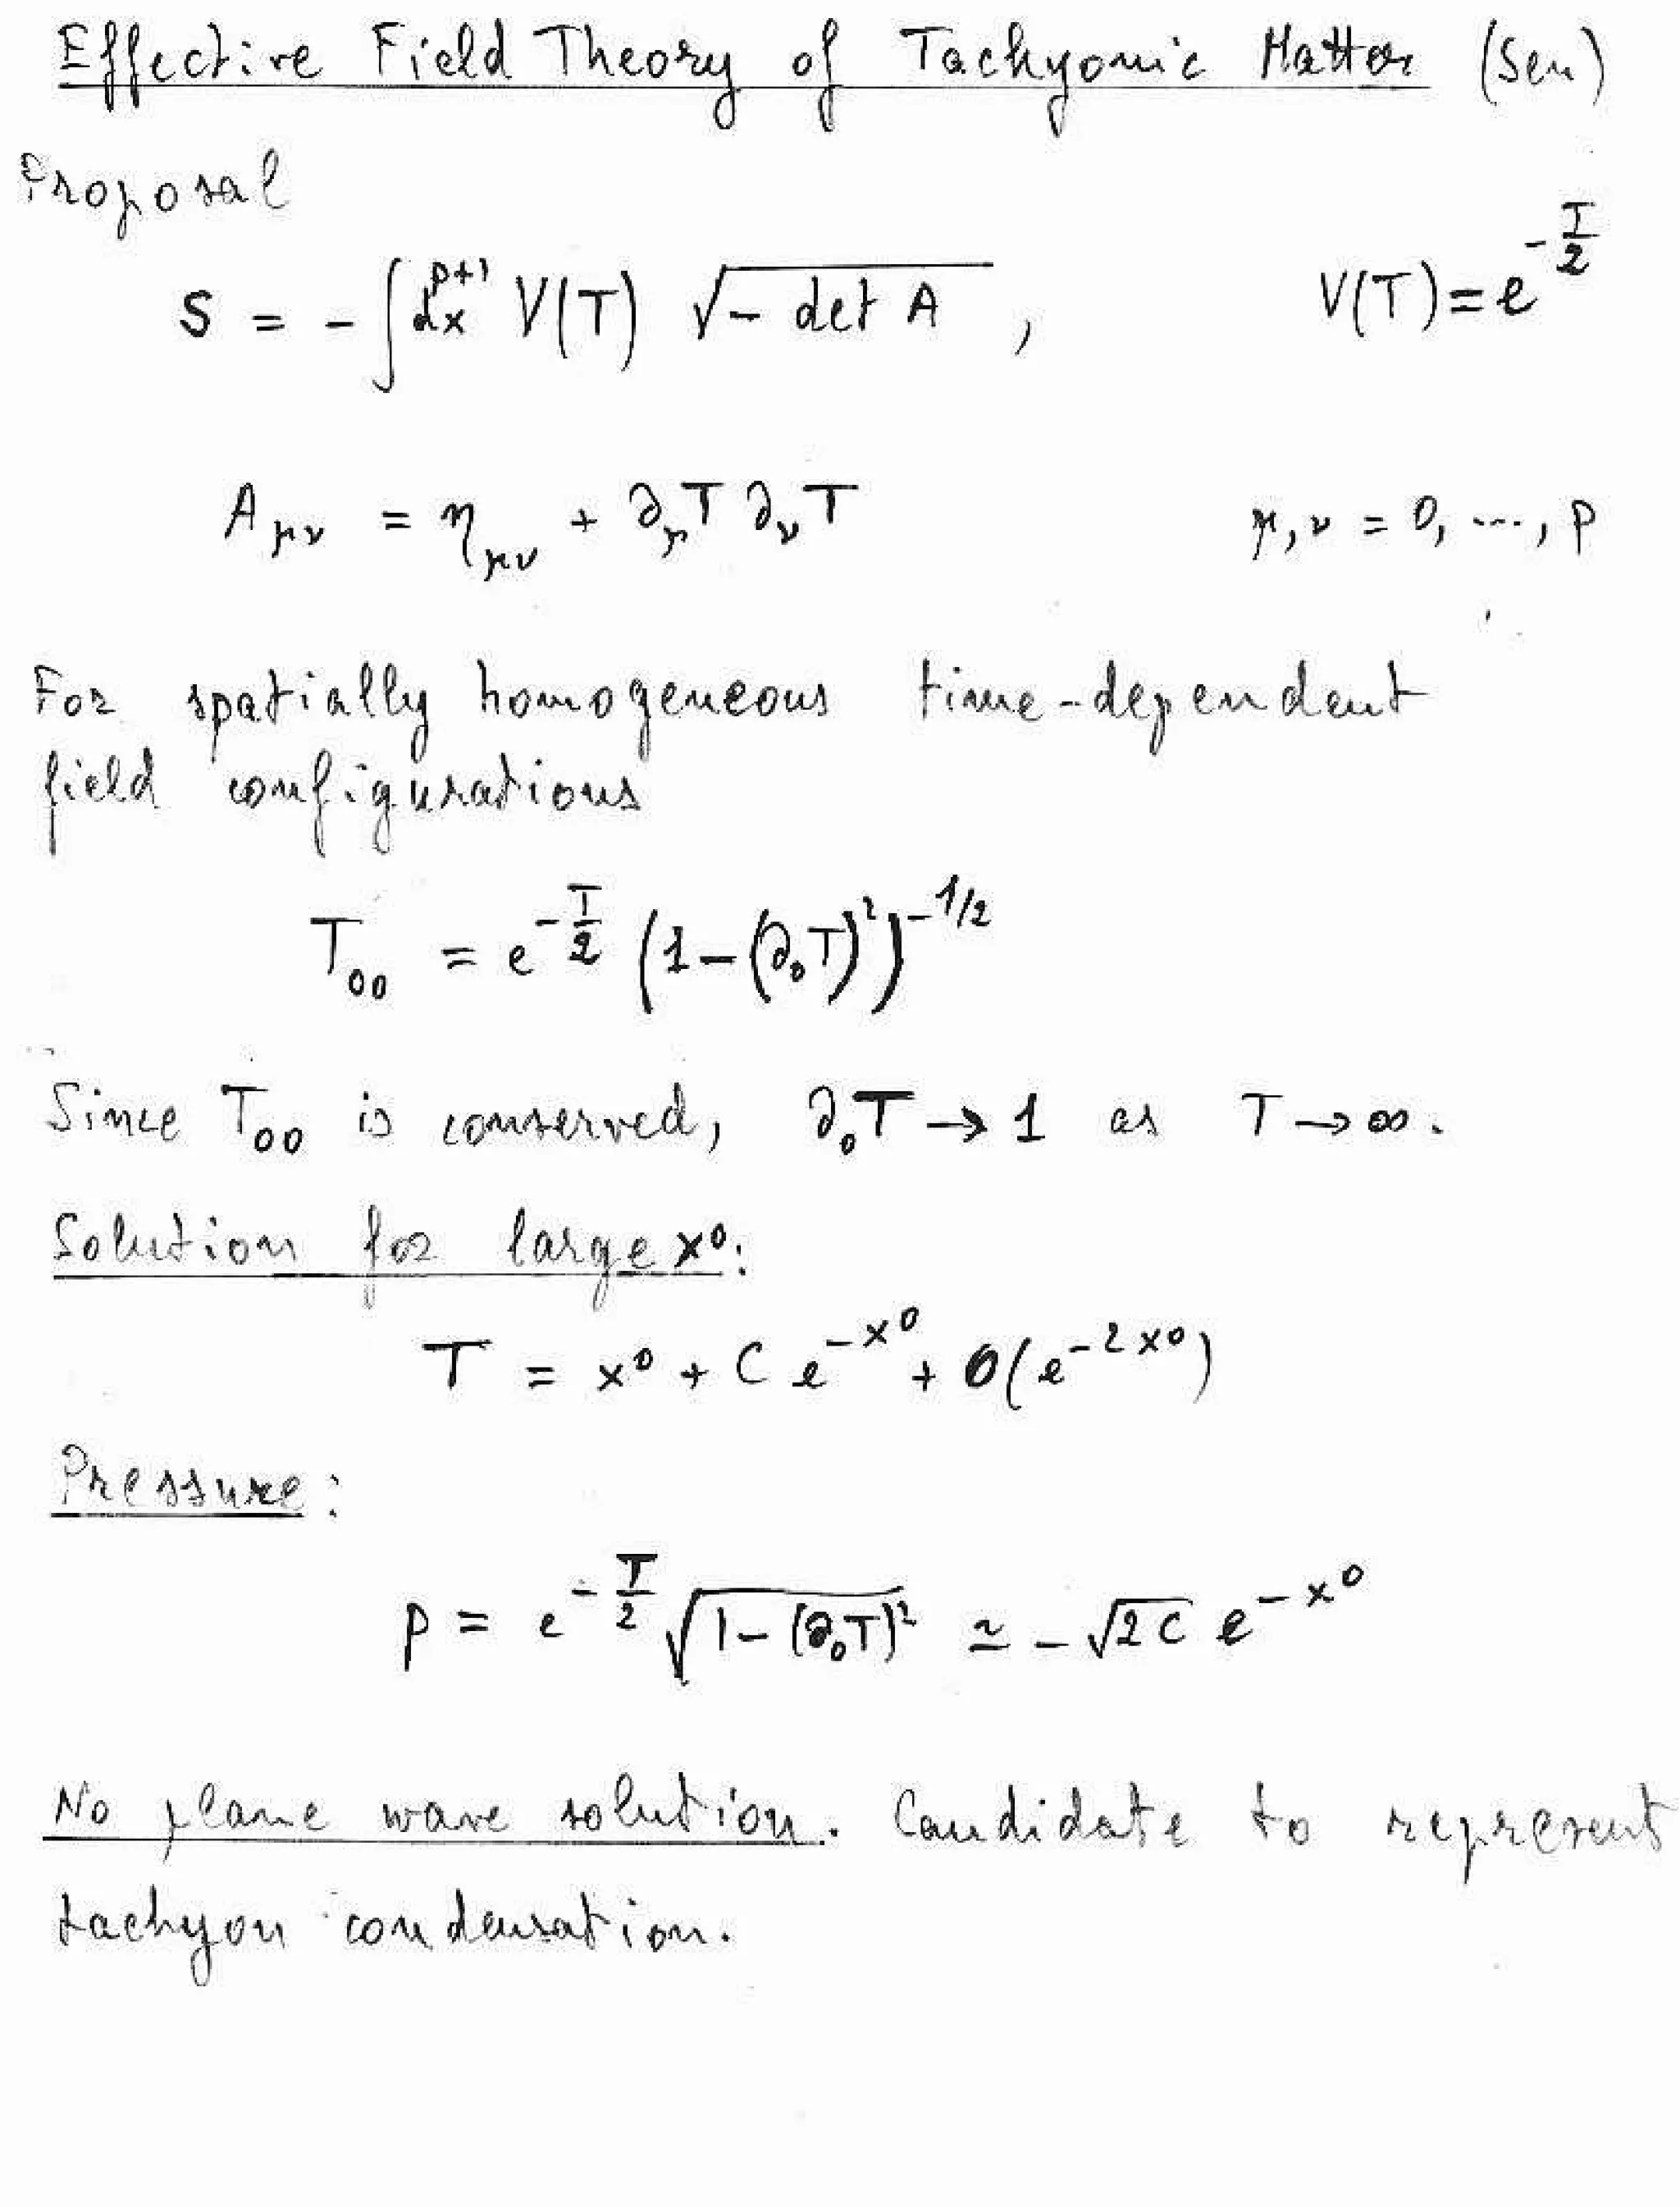 Effective Field Theory of Tachyonic Matter (Sen)
Proposal
S = - ∫ d^{p+1}x V(T) √(- det A) , V(T) = e^{-T/2}
A_{μν} = η_{μν} + ∂_μT ∂_νT μ,ν = 0, ..., p
For spatially homogeneous time-dependent
field configurations
T_{00} = e^{-T/2} (1-(∂_0T)^2)^{-1/2}
Since T_{00} is conserved, ∂_0T → 1 as T → ∞.
Solution for large x^0:
T = x^0 + C e^{-x^0} + O(e^{-2x^0})
Pressure:
p = e^{-T/2} √(1-(∂_0T)^2) ≃ - √(2C) e^{-x^0}
No plane wave solution. Candidate to represent
tachyon condensation.